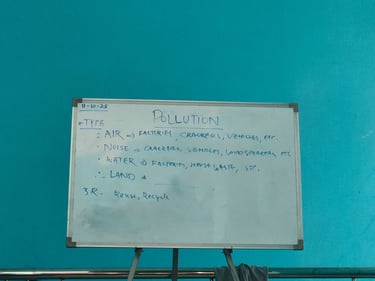 11-10-25
POLLUTION
TYPE
: AIR => FACTORIES CRACKERS, VEHICLES, ETC.
• NOISE => CRACKERS, VEHICLES, LOUDSPEAKERS, ETC
• WATER => FACTORIES, WASTE, ETC.
LAND
3R - Reuse, Recycle